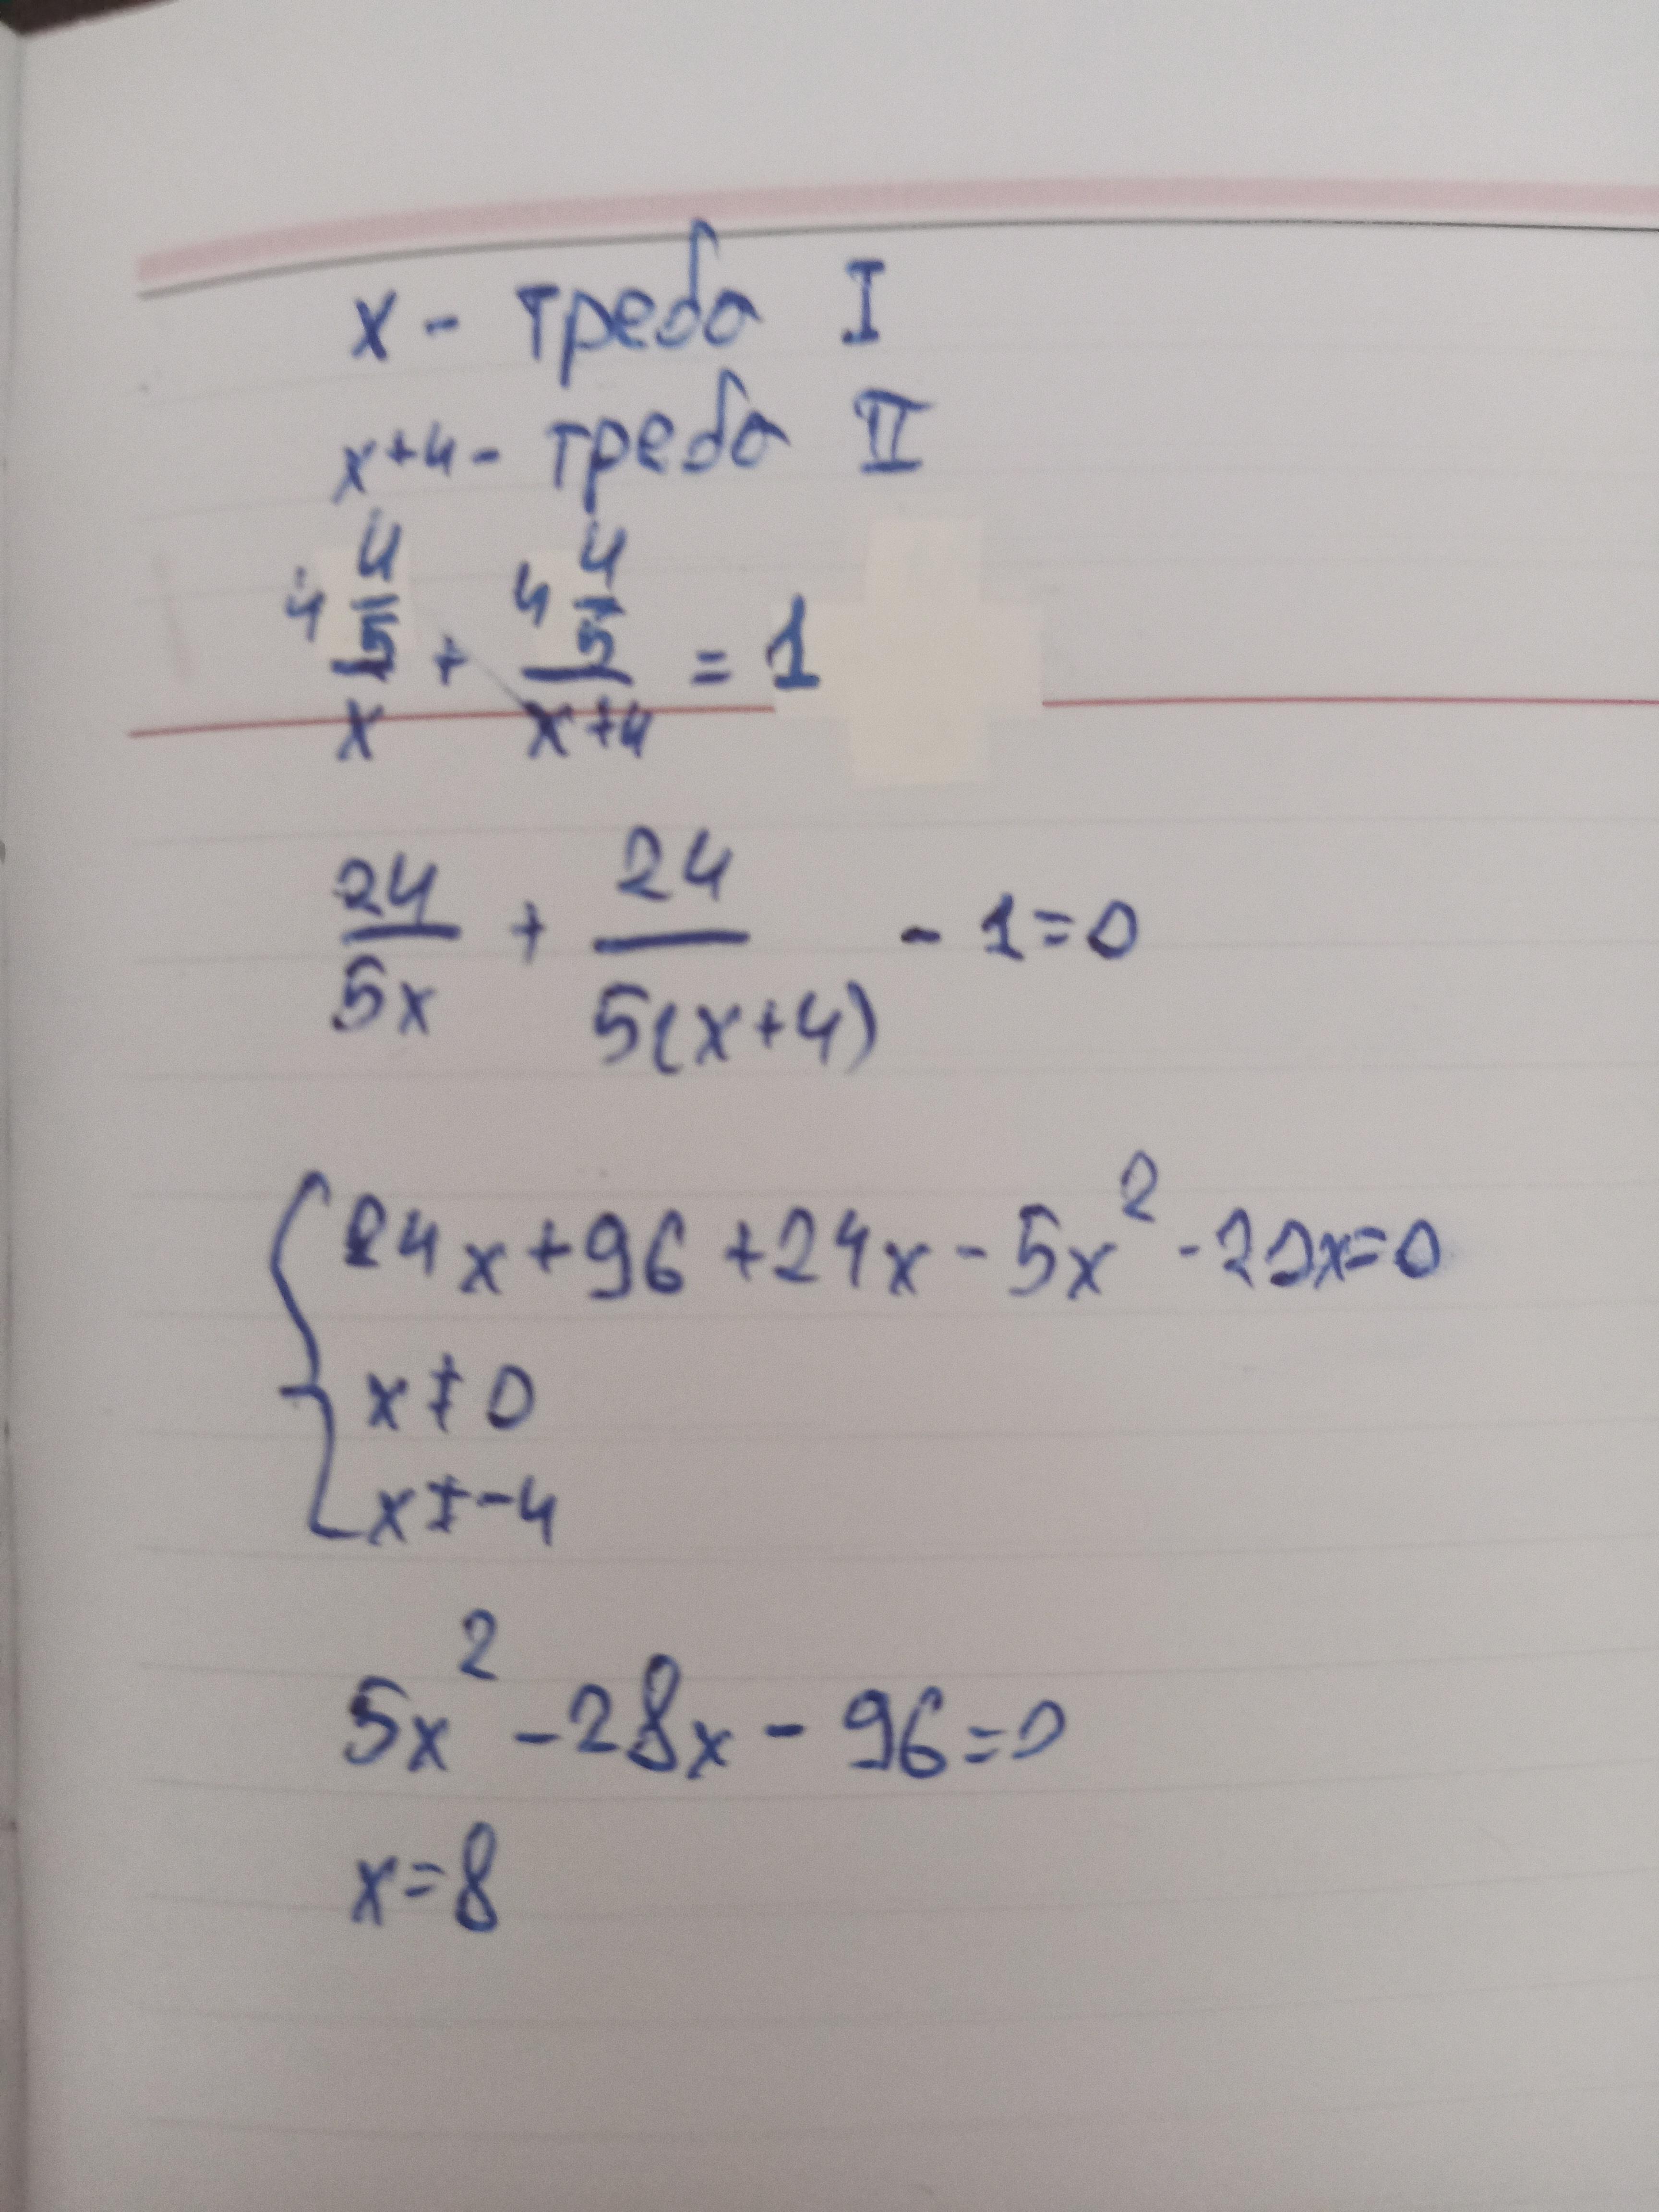 x - треба I
x+4 - треба II
4 4/5 / x + 4 4/5 / x+4 = 1
24/5x + 24/5(x+4) - 1=0
{24x+96+24x-5x²-20x=0
x≠0
x≠-4
5x²-28x-96=0
x=8